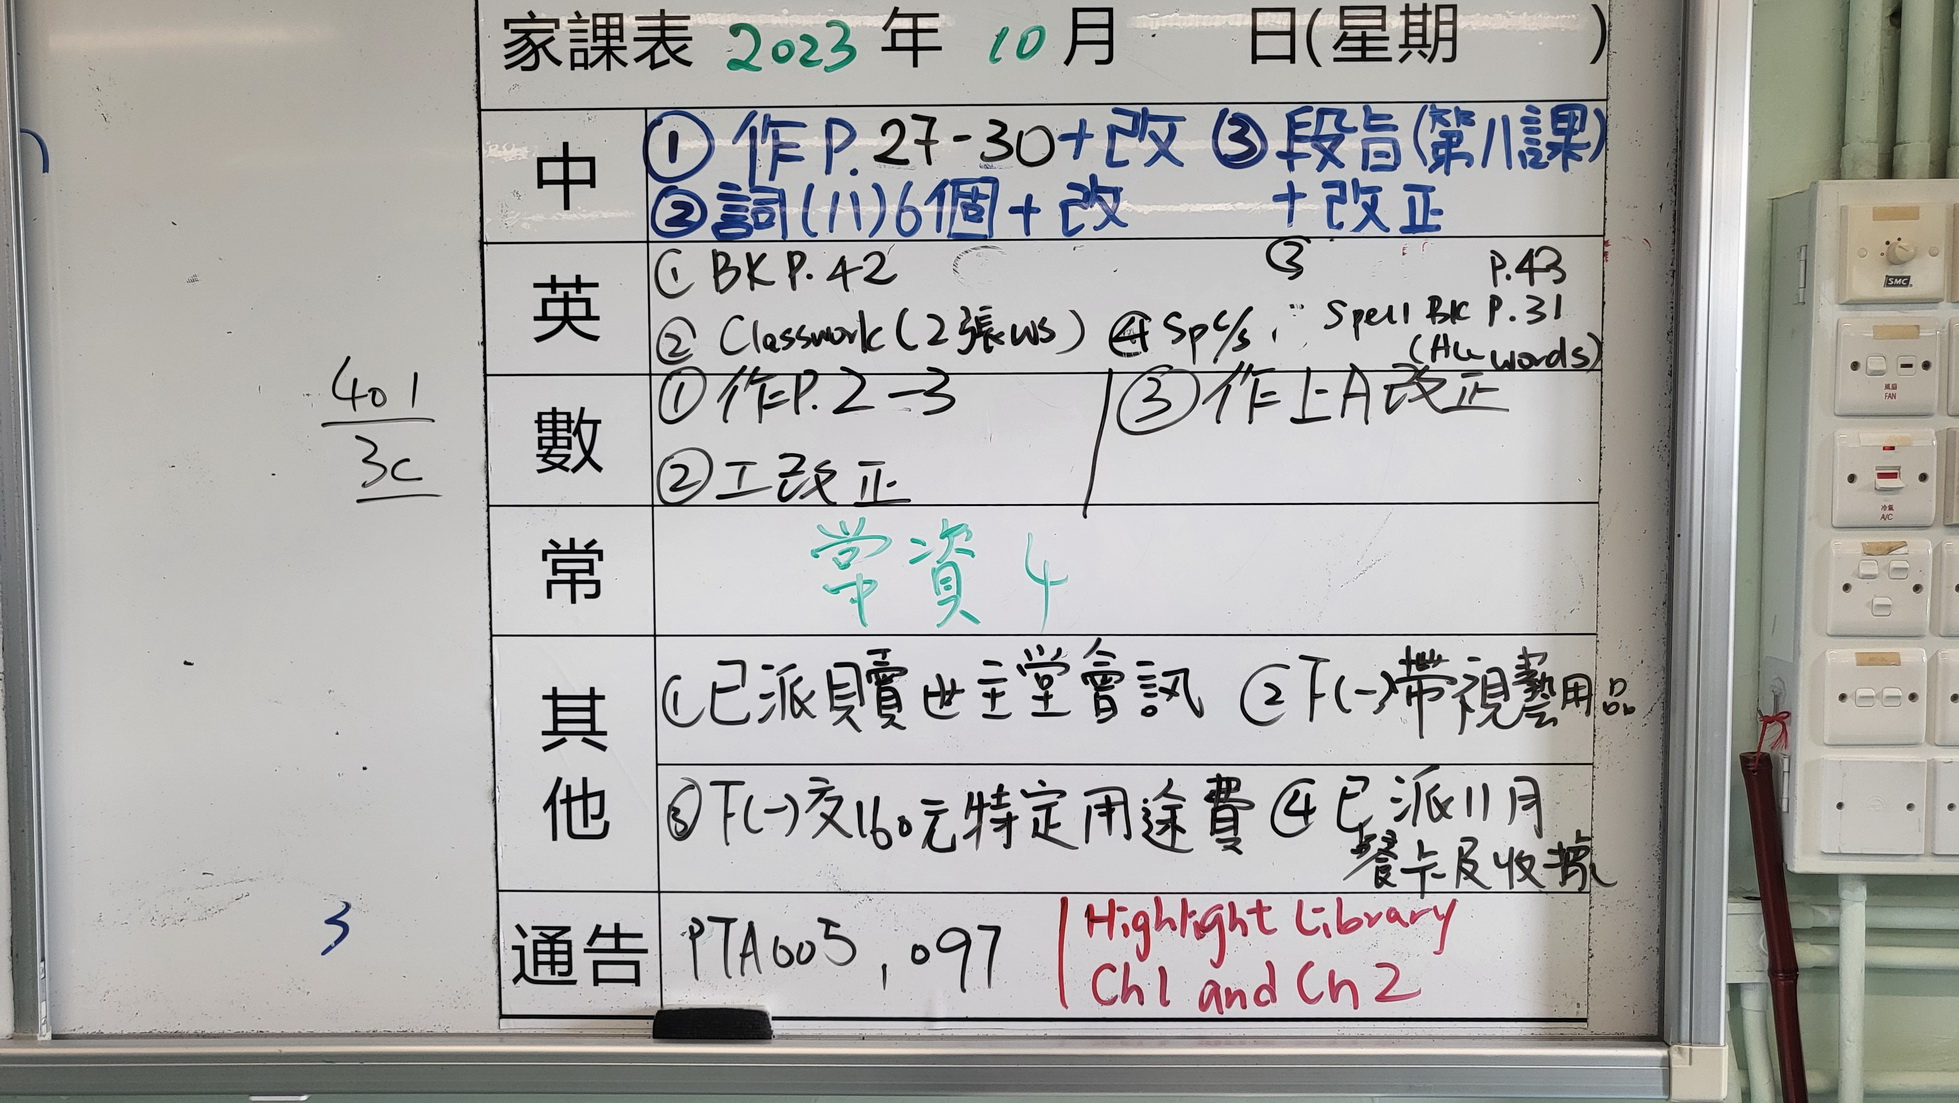 家課表 2023 年 10 月 日(星期 )
中
① 作P. 27-30+改 ③ 段旨(第11課)
② 詞(11)6個+改 +改正
英
① BK P. 42 ③ P.43
② Classwork(2張ws) ④ Sp c/s, Spell BK P. 31
words)
數
① 作P. 2-3 ③ 作上A改正
② 工改正
常
常資 4
其他
① 已派貝賣世主堂會訊 ② 下(一)帶視藝用品
③ 下(一)交160元特定用途費 ④ 已派11月
餐卡及收據
通告
PTA005, 097
Highlight Library
Ch1 and Ch2
401
3c
3
SMC
風扇
FAN
冷氣
A/C